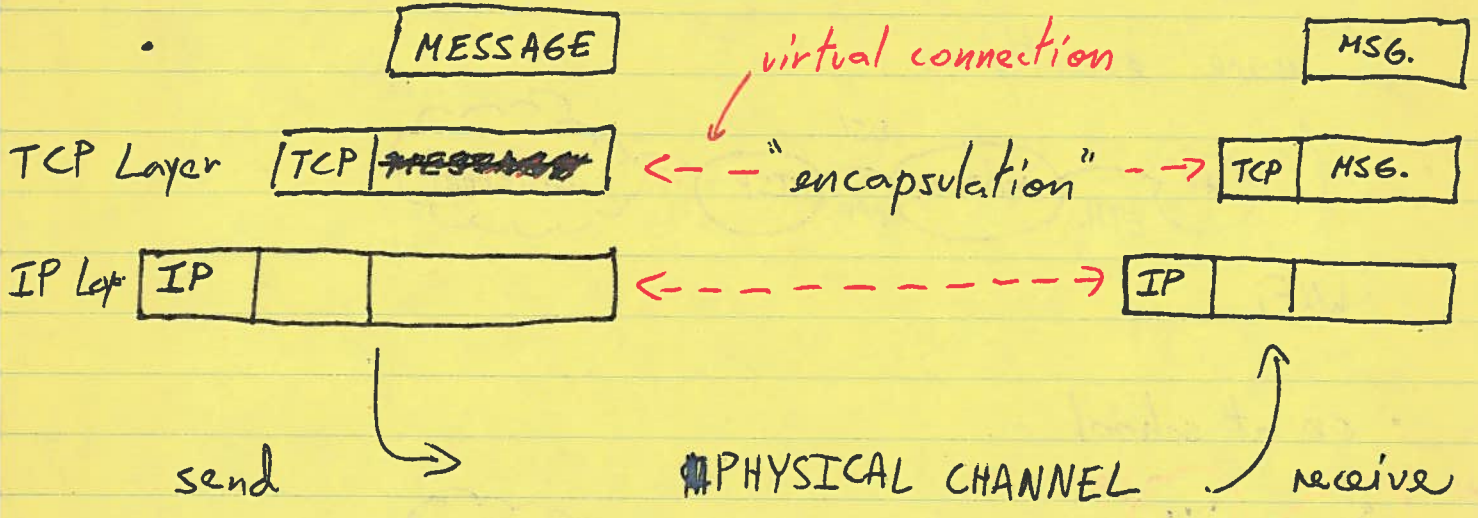 MESSAGE
virtual connection
MSG.
TCP Layer
TCP
"encapsulation"
TCP MSG.
IP
IP
IP
send
PHYSICAL CHANNEL
receive